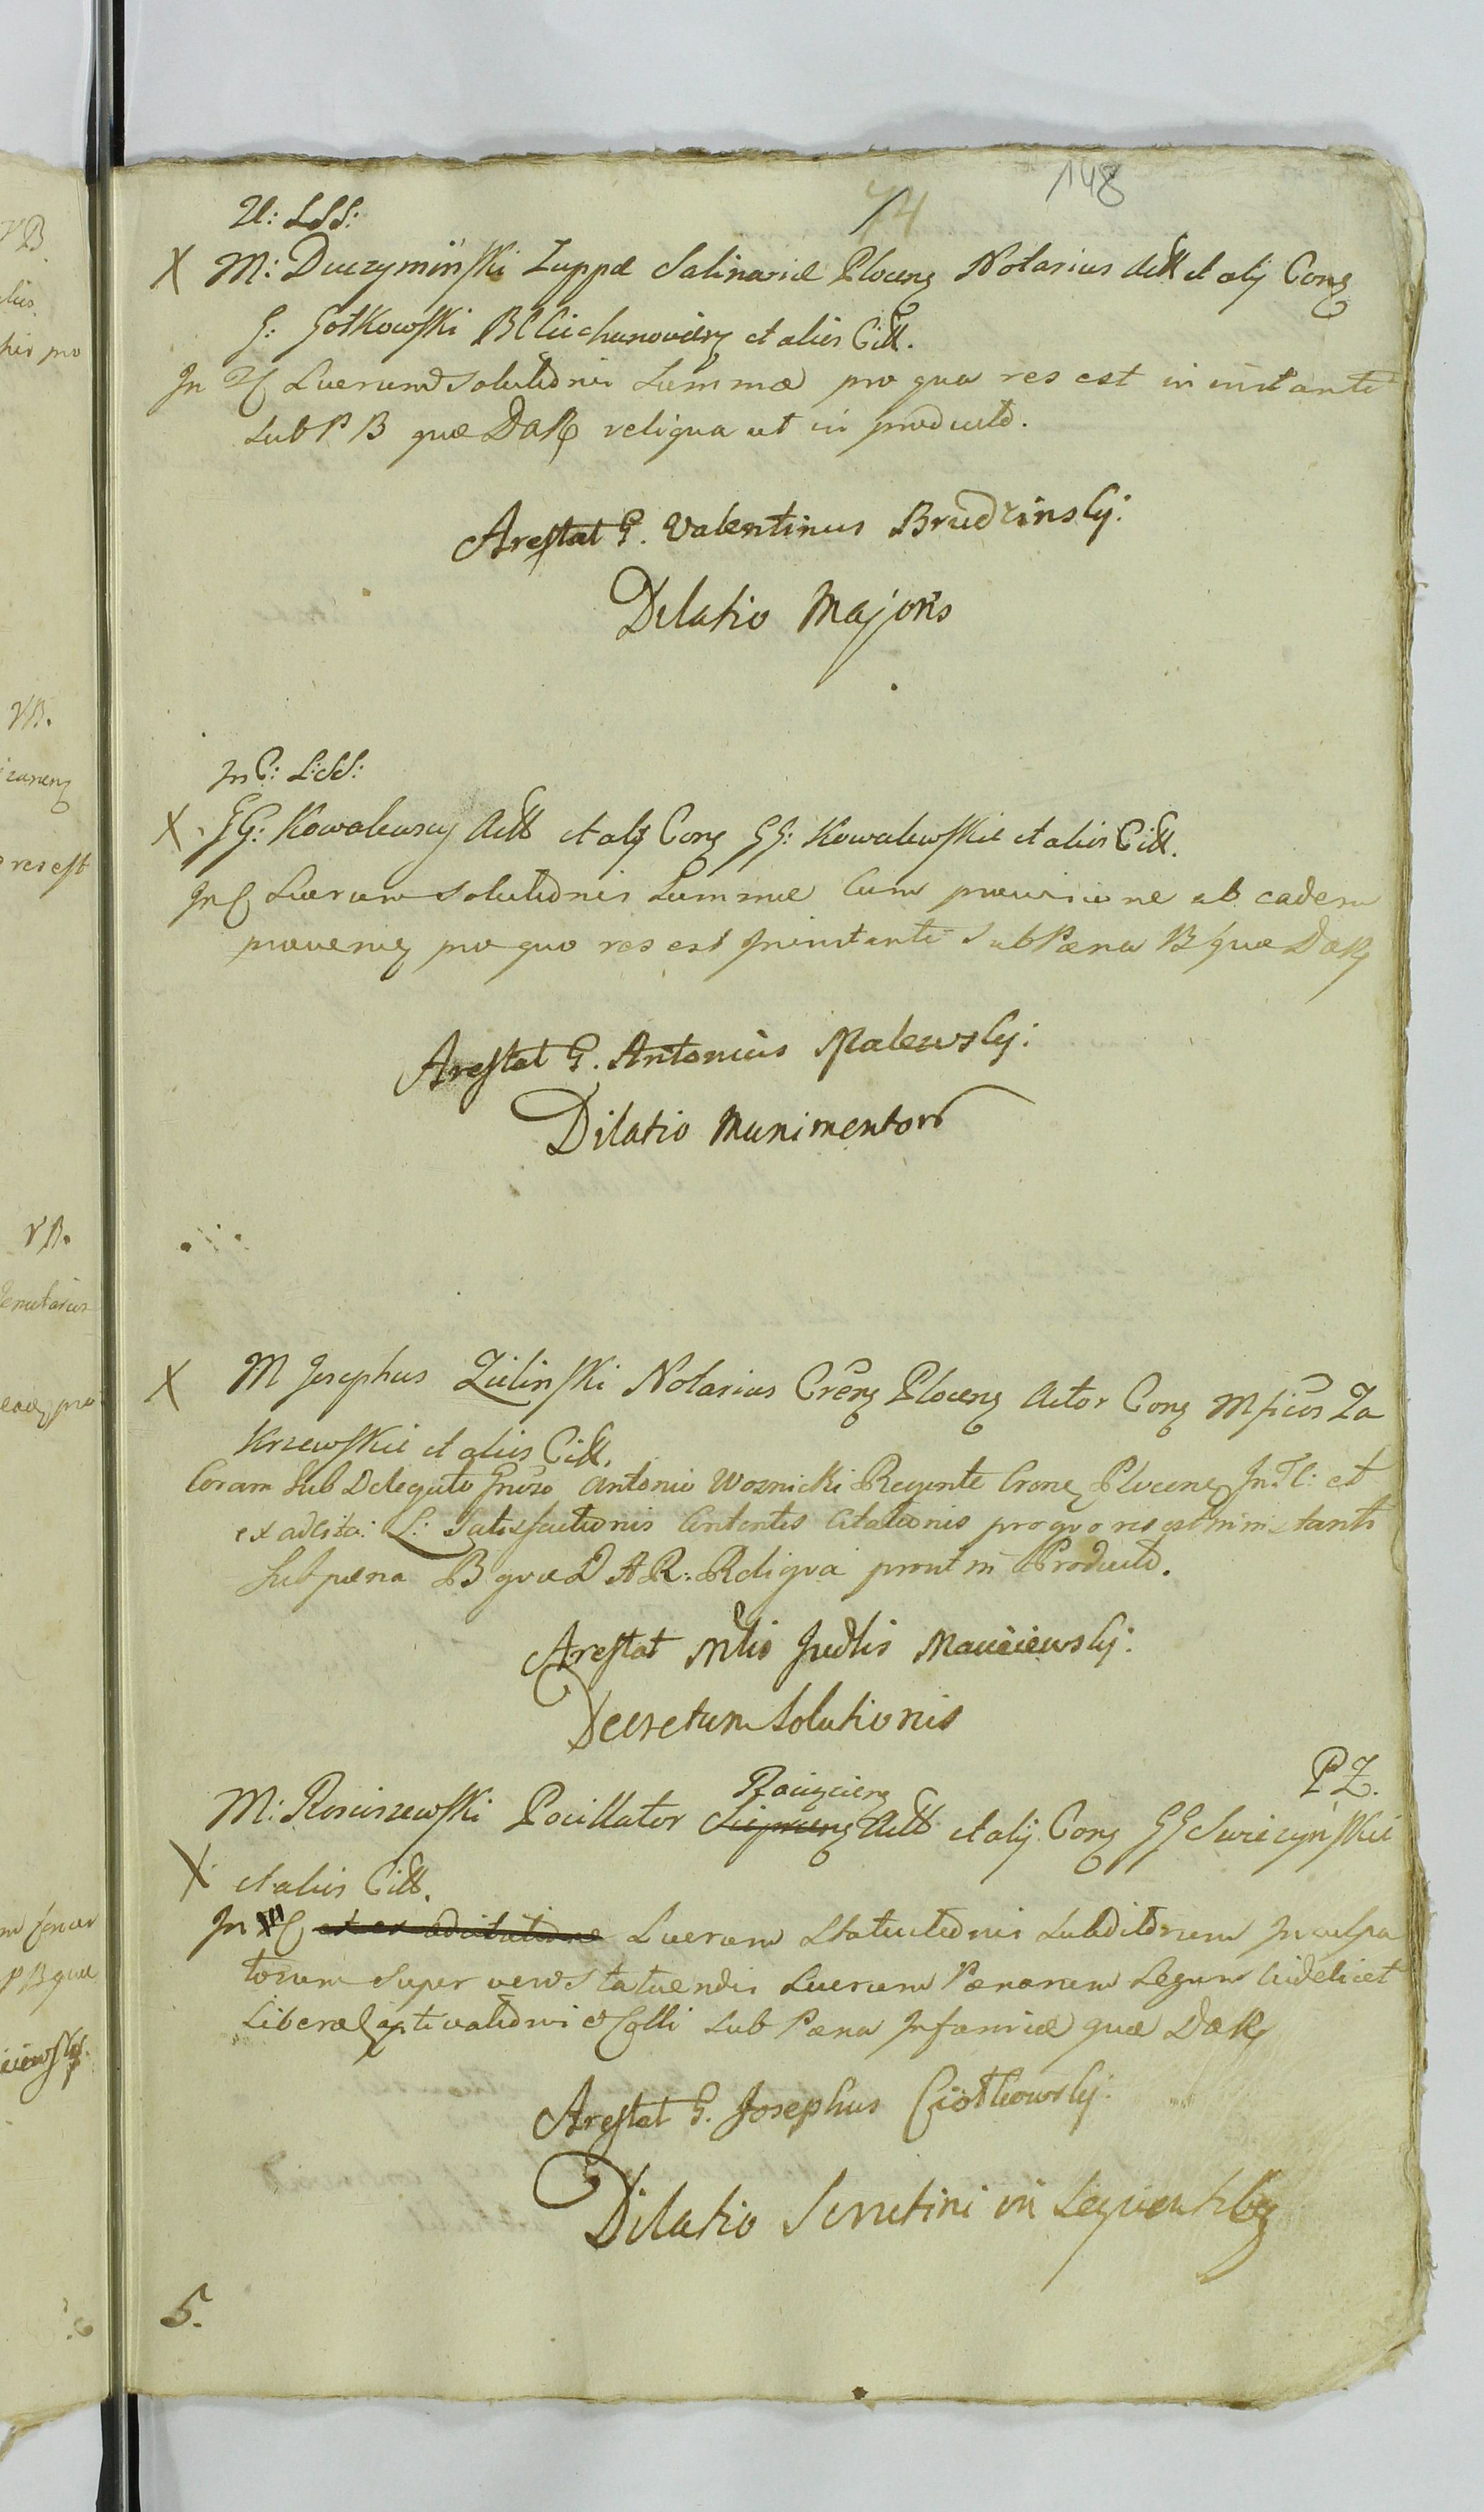 148
74
U: LSS:
X M: Duczyminski Zuppæ Salinariæ Ploceng Notarius Actt et alij Cong
G: Gotkowski B Ciechanovieng et alios Citt.
In Luerum solutionis Summæ pro qua res est in instanti
Sub P B quæ DaR reliqua ut in producto.
Arestat G. Valentinus Brudzinsky:
Dilatio Majoris
In C: L:SS:
X GG: Kowalewscy Actt et alij Cong GG: Kowalewskie et alios Citt.
In C Luerum solutionis Summæ Cum provisione ab eadem
proveneng pro quo res est in instanti Sub Pæna B quæ DaR
Arestat G. Antonius Malewsky:
Dilatio Munimentor
X M Josephus Zielinski Notarius Creng Ploceng Actor Cong Mficos Za
krzewskie et alios Citt.
Coram Sub Delegato Gnroso Antonio Woznicki Regente Crone Plocene In T C: et
ex adcita: L: Satisfactionis Contentis Citationis pro quo res est in instanti
Sub pæna B quæ D A R: Reliqua prout in Producto.
Arestat Mlis Judlis Maciewsky:
Decretum Solutionis
P Z.
Raciązieng
M: Rosciszewski Pocillator Sieprceng Actt et alij Cong GG Swiezynskie
X et alios Citt.
In C et ex adcitatione Luerum Statuitionis Subditorum Inculpa
torum Super vero Statuendis Luerum Pænarum Legum Videlicet
Liberæ Captivationis & Colli Sub Pæna Infamiæ quæ DaR
Arestat G. Josephus Ciotkowsky:
Dilatio Scrutini in Sequentibg
5.